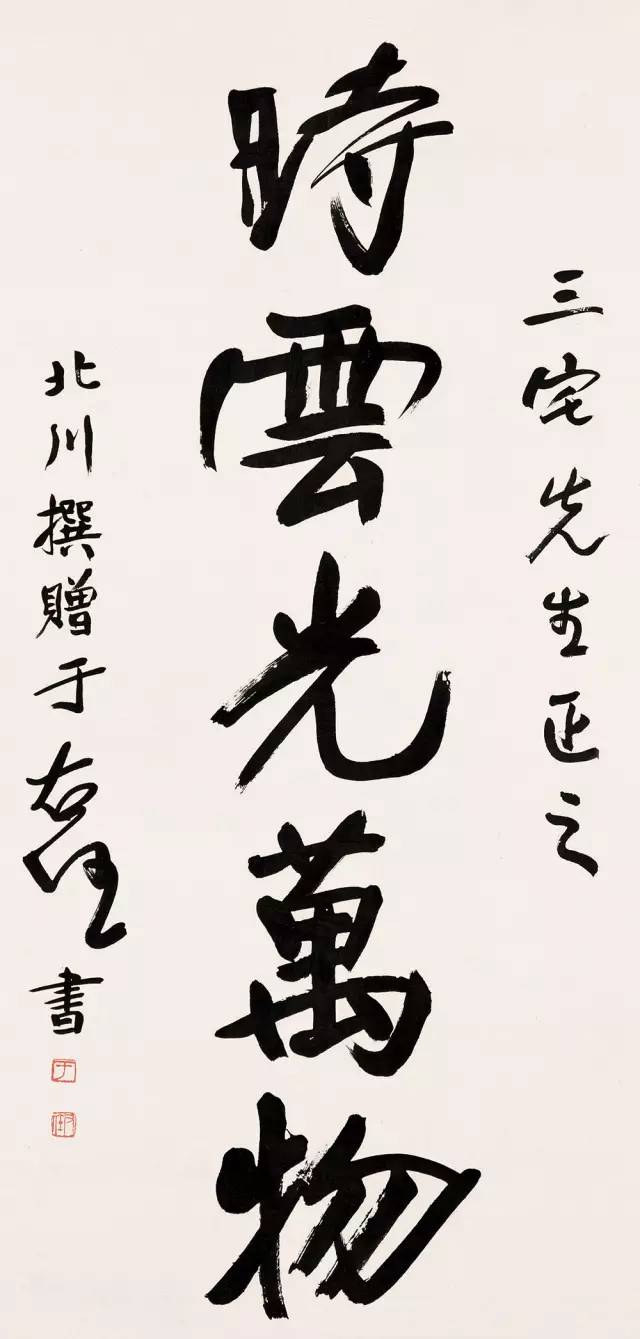 三宅先生正之
時雲光萬物
北川撰贈于右任書
于